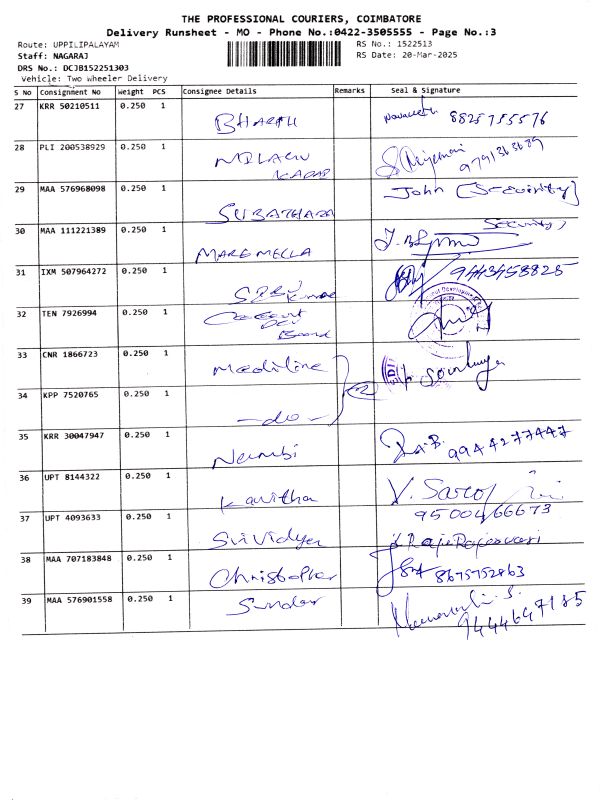 THE PROFESSIONAL COURIERS, COIMBATORE
Delivery Runsheet - MO - Phone No.:0422-3505555 - Page No.:3
Route: UPPILIPALAYAM RS No.: 1522513
Staff: NAGARAJ RS Date: 20-Mar-2025
DRS No.: DCJB152251303
Vehicle: Two Wheeler Delivery
S No Consignment No Weight PCS Consignee Details Remarks Seal & Signature
27 KRR 50210511 0.250 1
BHARATH 8825755576
28 PLI 200538929 0.250 1
29 MAA 576968098 0.250 1 John (Security)
30 MAA 111221389 0.250 1 Security
31 IXM 507964272 0.250 1 9443458825
32 TEN 7926994 0.250 1
33 CNR 1866723 0.250 1
Mediline
34 KPP 7520765 0.250 1
-do-
35 KRR 30047947 0.250 1
Nambi 9944277447
36 UPT 8144322 0.250 1
Kavitha
37 UPT 4093633 0.250 1 9500466673
Srividya
38 MAA 707183848 0.250 1
Christopher 8675752863
39 MAA 576901558 0.250 1
Sundar 9444647185